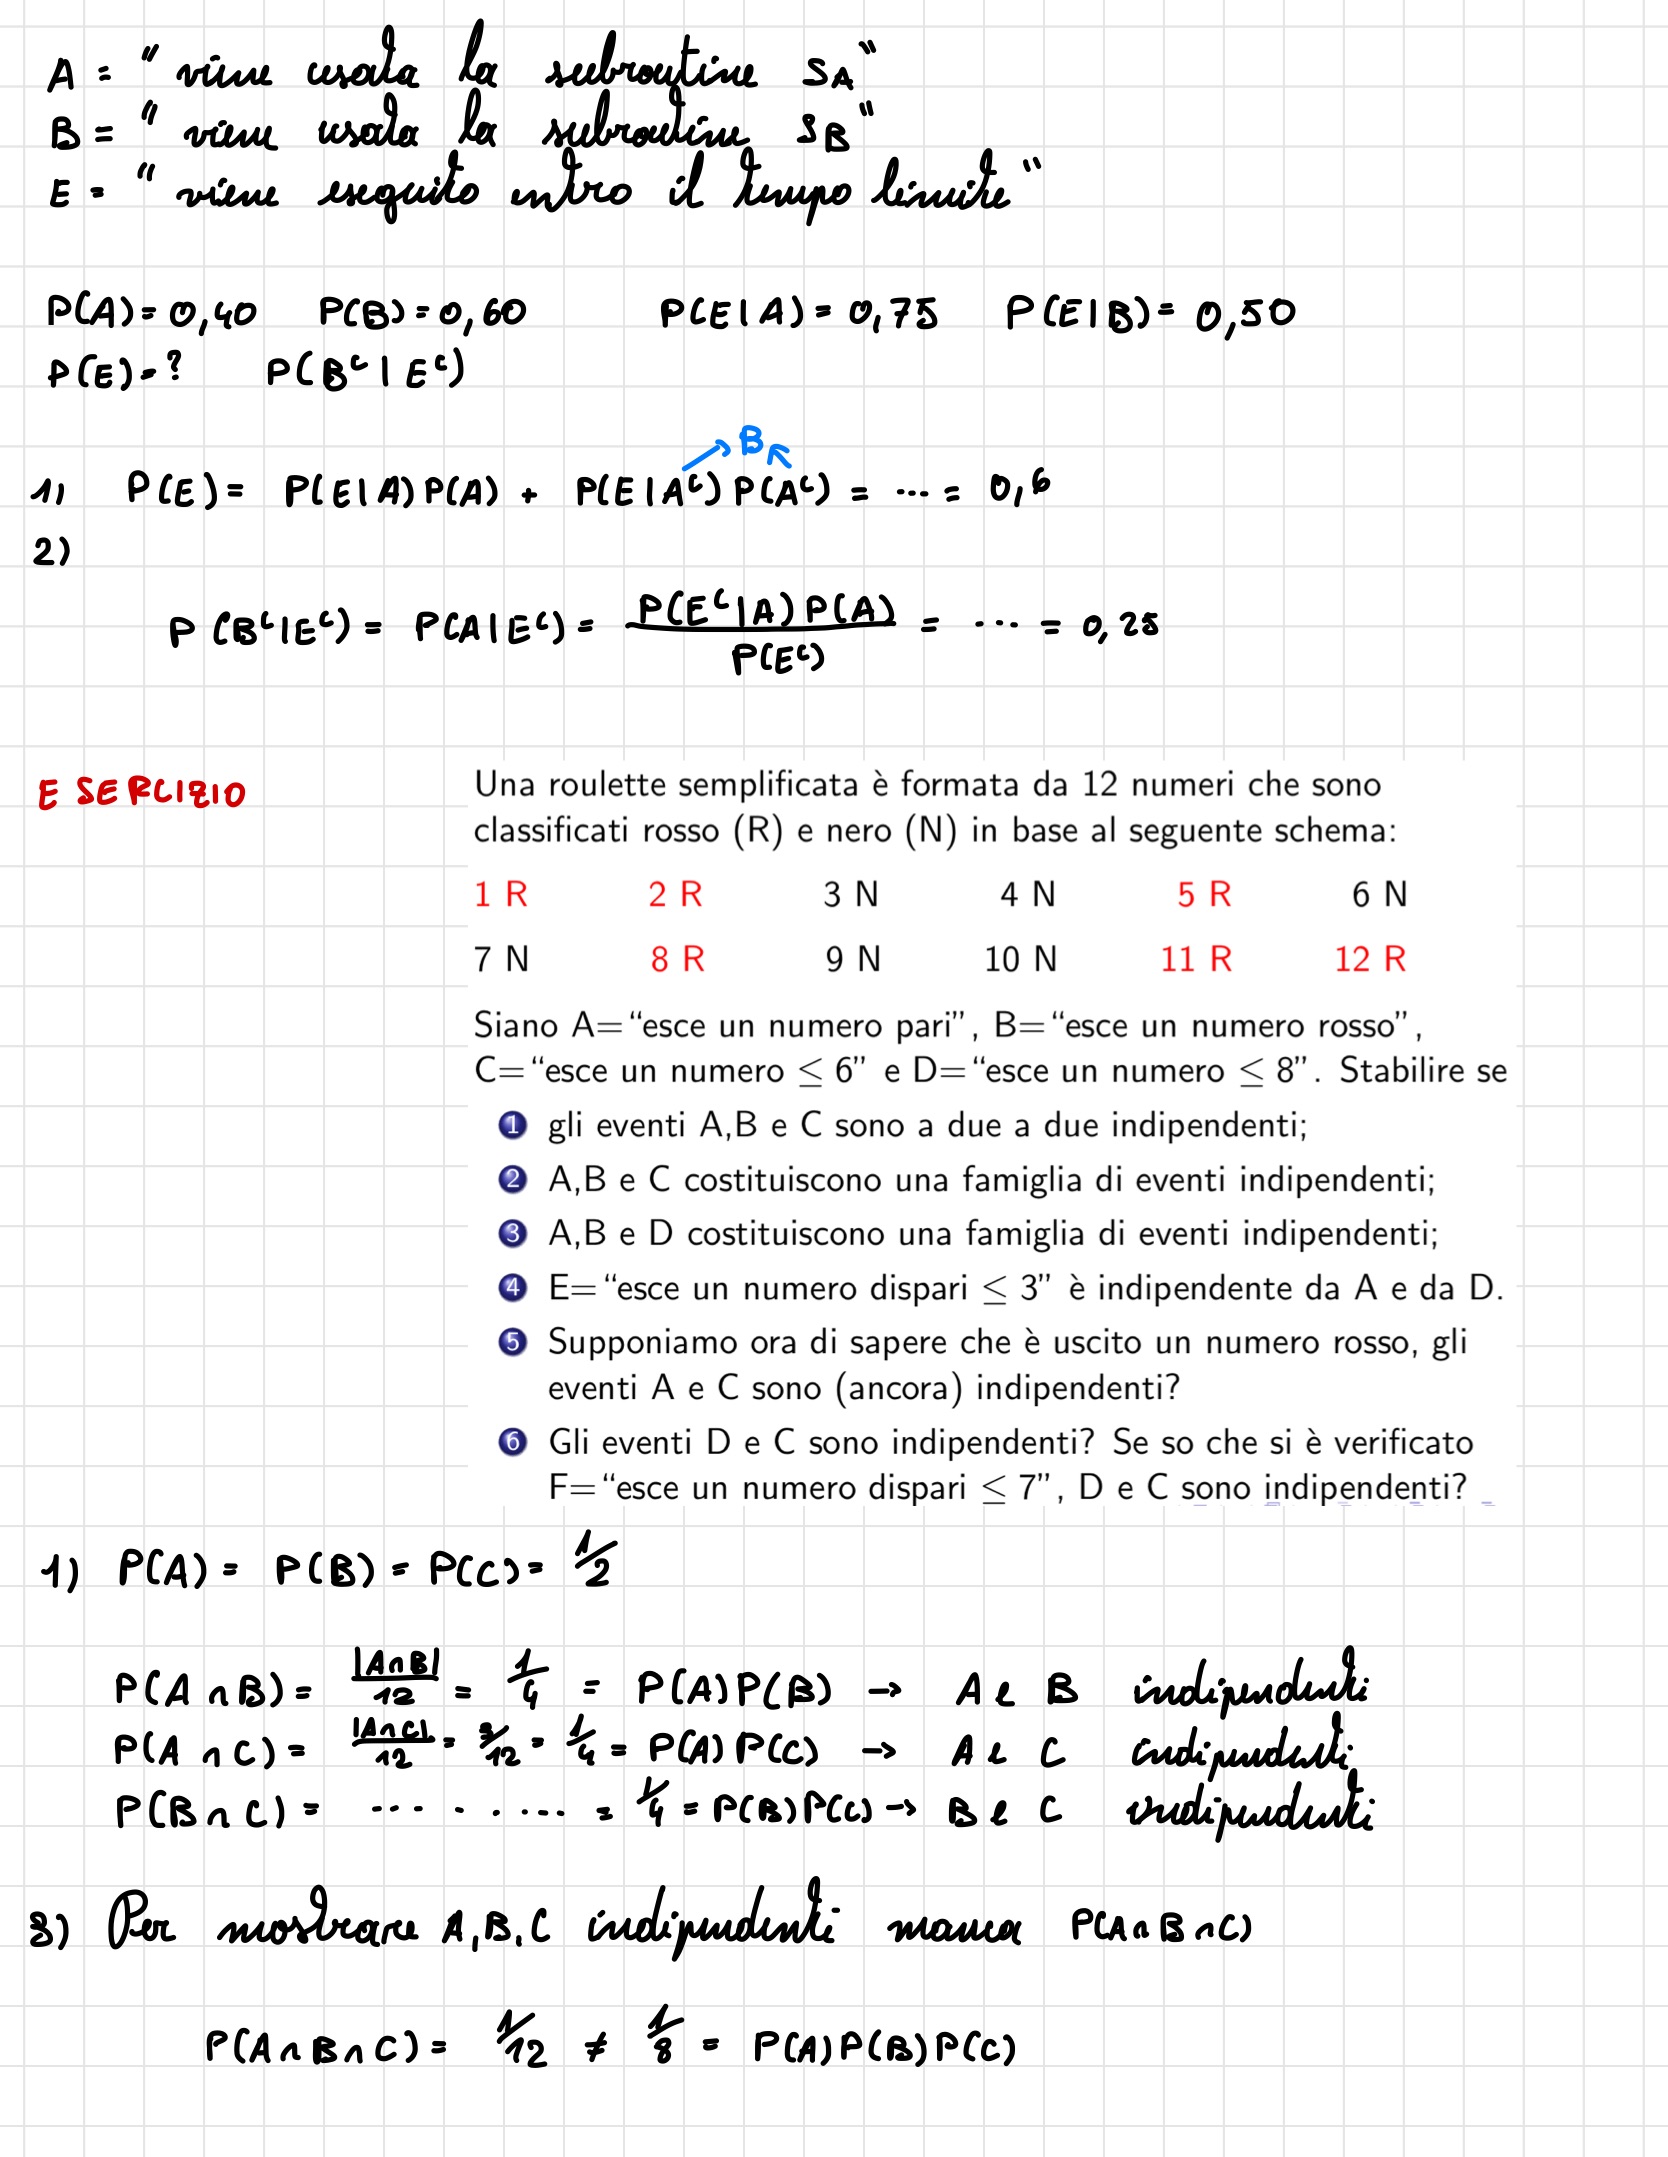 A = " viene usata la subroutine SA"
B = " viene usata la subroutine SB"
E = " viene eseguito entro il tempo limite"
P(A) = 0,40 P(B) = 0,60 P(E|A) = 0,75 P(E|B) = 0,50
P(E) = ? P(Bᶜ|Eᶜ)
B
1) P(E) = P(E|A) P(A) + P(E|Aᶜ) P(Aᶜ) = ... = 0,6
2)
P(Bᶜ|Eᶜ) = P(A|Eᶜ) = P(Eᶜ|A) P(A) / P(Eᶜ) = ... = 0,25
ESERCIZIO
Una roulette semplificata è formata da 12 numeri che sono
classificati rosso (R) e nero (N) in base al seguente schema:
1 R 2 R 3 N 4 N 5 R 6 N
7 N 8 R 9 N 10 N 11 R 12 R
Siano A="esce un numero pari", B="esce un numero rosso",
C="esce un numero ≤ 6" e D="esce un numero ≤ 8". Stabilire se
1 gli eventi A,B e C sono a due a due indipendenti;
2 A,B e C costituiscono una famiglia di eventi indipendenti;
3 A,B e D costituiscono una famiglia di eventi indipendenti;
4 E="esce un numero dispari ≤ 3" è indipendente da A e da D.
5 Supponiamo ora di sapere che è uscito un numero rosso, gli
eventi A e C sono (ancora) indipendenti?
6 Gli eventi D e C sono indipendenti? Se so che si è verificato
F="esce un numero dispari ≤ 7", D e C sono indipendenti?
1) P(A) = P(B) = P(C) = 1/2
P(A∩B) = |A∩B|/12 = 1/4 = P(A)P(B) → A e B indipendenti
P(A∩C) = |A∩C|/12 = 3/12 = 1/4 = P(A)P(C) → A e C indipendenti
P(B∩C) = ......... = 1/4 = P(B)P(C) → B e C indipendenti
3) Per mostrare A,B,C indipendenti manca P(A∩B∩C)
P(A∩B∩C) = 1/12 ≠ 1/8 = P(A)P(B)P(C)